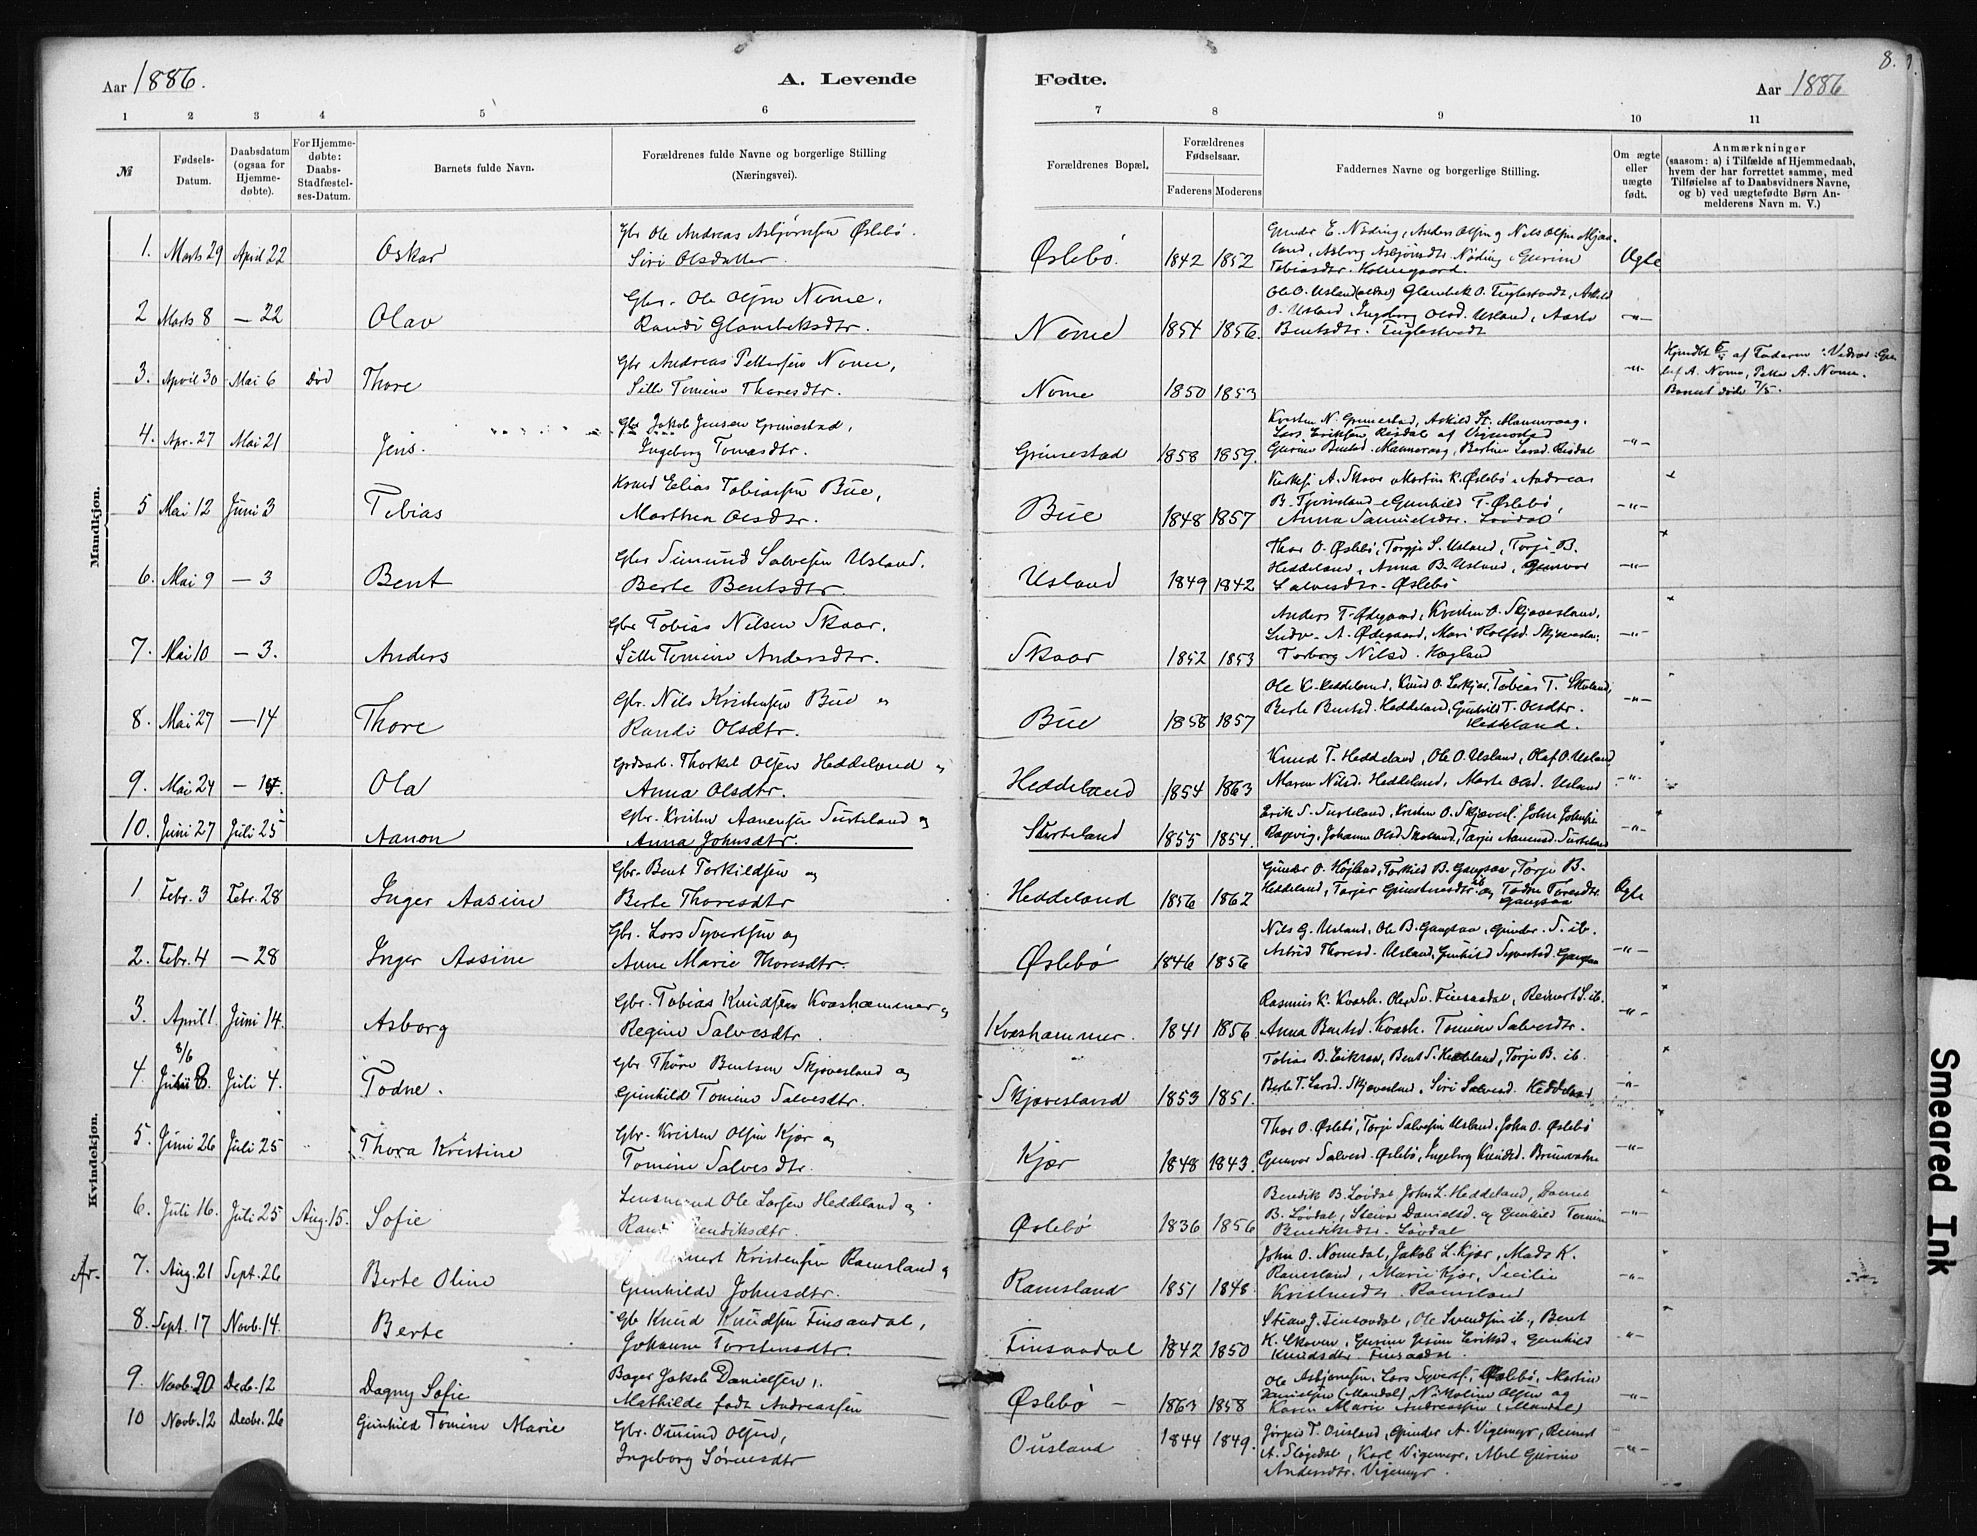 Aar 1886.
A. Levende
Fødte.
Aar 1886
8.
1 2 3 4 5 6 7 8 9 10 11
№
Fødsels-Datum.
Daabsdatum (ogsaa for Hjemmedøbte).
For Hjemmedøbte: Daabs-Stadfæstelses-Datum.
Barnets fulde Navn.
Forældrenes fulde Navne og borgerlige Stilling (Næringsvei).
Forældrenes Bopæl.
Forældrenes Fødselsaar.
Faderens Moderens
Faddernes Navne og borgerlige Stilling.
Om ægte eller uægte født.
Anmærkninger
(saasom: a) i Tilfælde af Hjemmedaab, hvem der har forrettet samme, med Tilføielse af to Daabsvidners Navne, og b) ved uægtefødte Børn Anmelderens Navn m. V.)
Mandkjøn.
1. Marts 29 April 22 Oskar Gbr Ole Andreas Asbjørnsen Øslebø.
Siri Olsdatter. Øslebø. 1842 1852 Gunder E. Nøding, Anders Olsen og Nils Olsen
Asborg Asbjørnsdtr. Nøding, Gurine
Tobiasdtr. Holmegaard. Ægte
2 Marts 8 — 22 Olav Gbr. Ole Olsen Nome,
Randi Glambeksdtr. Nome 1854 1856. Ole O. Usland Glambek O. Fuglestvedt,
O. Usland, Ingborg Olsd. Usland, Aaste
Bentsdtr. Fuglestvedt —"—
3. April 30 Mai 6 Død Thore Gbr Andreas Pettersen Nome,
Sille Tomine Thoresdtr. Nome 1850 1853 —"— af Faderen
A. Nome, Petter A. Nome.
Barnet døde 7/5.
4. Apr. 27 Mai 21 Jens. Gbr Jakob Jensen Grimestad,
Ingeborg Tomasdtr. Grimestad 1858 1859. Kristen N. Grimestad, Askild
Lars Eriksen Risdal af Vigmostad
Gurine Bentsd. Berthine Larsd. Risdal —"—
5 Mai 12 Juni 3 Tobias Elias Tobiassen Bue,
Marthea Olsdtr. Bue 1848 1857 A. Skaar, Martin K. Øslebø, Andreas
B. Tjomsland, Gunhild T. Øslebø,
Anna Samuelsdtr. Løvdal —"—
6. Mai 9 — 3 Bent Gbr Simund Salvesen Usland.
Berte Bentsdtr. Usland 1849 1842 Thor O. Øslebø, Torgje S. Usland, Torje B.
Heddeland, Anna B. Usland, Gunvor
Salvesdtr. Øslebø —"—
7. Mai 10 — 3. Anders Gbr Tobias Nilsen Skaar.
Sille Tomine Andersdtr. Skaar 1852 1853 Anders T. Ødegaard, Kristen O. Skjævesland,
A. Ødegaard, Mari Rolfsd.
Torborg Nilsd. Høgland —"—
8. Mai 27 — 14 Thore Gbr. Nils Kristensen Bue og
Randi Olsdtr. Bue 1858 1857 Ole K. Heddeland, Knud O. Tobias T.
Berte Bentsd. Heddeland, Gunhild T. Olsdtr.
Heddeland. —"—
9. Mai 24 — 14. Ola Thorkel Olsen Heddeland og
Anna Olsdtr. Heddeland 1854 1863 Knud T. Heddeland, Ole O. Usland, Olaf O. Usland
Maren Nilsd. Heddeland, Marte Olsd. Usland —"—
10. Juni 27 Juli 25 Aanon Gbr. Kristen Aanensen Surteland og
Anna Johnsdtr. Surteland 1855 1854. Erik S. Surteland, Kristen O. Skjævesl. John Johnsen
Johanne Olsd. Torjer Surteland —"—
Kvindekjøn.
1 Febr. 3 Febr. 28 Inger Aasine Gbr. Bent Torkildsen og
Berte Thoresdtr Heddeland 1856 1862 Gunder O. Høgland, Torkild B. Gangsaa, Torje B.
Heddeland, Torjer og Todne Toresdtr.
Gangsaa Ægte
2. Febr. 4 — 28 Inger Aasine Gbr. Lars Syvertsen og
Anne Marie Thoresdtr. Øslebø 1846 1856 Nils G. Usland, Ole B. Gangsaa, Gunder S. ib.
Astrid Thoresd. Usland, Gunhild Syvertsd. Gangsaa —"—
3. April 1. Juni 14. Asborg Gbr. Tobias Knudsen Kvashammer og
Regine Salvesdtr. Kvashammer. 1841 1856 Rasmus K. Kvash. Ole Sv. Finsaadal, Reinert S. ib.
Anna Bentsd. Kvash. Tomine Salvesdtr. —"—
8/6
4 Juli 4. Todne. Gbr Thore Bentsen Skjævesland og
Gunhild Tomine Salvesdtr. Skjævesland 1853 1851. Tobias B. Bent S. Heddeland, Torje B. ib.
Berte T. Larsd. Skjævesland, Siri Salvesd. Heddeland —"—
5. Juni 26 Juli 25 Thora Kristine Gbr. Kristen Olsen Kjær og
Tomine Salvesdtr. Kjær 1848 1843. Thor O. Øslebø, Torje Salvesen Usland, John O. Øslebø
Gunvor Salvesd. Øslebø, Ingeborg Knudsd. Brunvatne —"—
6. Juli 16. Juli 25 Aug. 15. Sofie Lensmand Ole Larsen Heddeland og
Øslebø 1836 1856 Bendik B. Løvdal, John L. Heddeland, Daniel
B. Løvdal, Danielsd. og Gunhild Tomine
Bendiksdtr. Løvdal —"—
7. Aug. 21 Sept. 26 Berte Oline Kristensen Ramsland og
Gunhilde Johnsdtr. Ramsland 1851 1848. John O. Nomedal, Jakob L. Kjær, Mads K.
Ramsland, Marie Kjær, Secilie
Kristensdtr. Ramsland —"—
8. Sept. 17 Novb. 14. Berte Gbr Knud Knudsen Finsaadal,
Johanne Torstensdtr. Finsaadal 1842 1850 J. Finsaadal, Ole Svendsen ib., Bent
K. Skoven, Gurine Eriksd., Gunhild
Knudsdtr Finsaadal. —"—
9. Novb. 20 Decb. 12 Dagny Sofie Bager Jakob Danielsen,
Mathilde født Andreassen Øslebø — 1863 1858 Ole Asbjønsen, Lars Syverts. Øslebø, Martin
Danielsen (Mandal), Nikoline Olsen og
Karen Marie Andreassen (Mandal) —"—
10 Novb. 12 Decbr. 26 Gunhild Tomine Marie Gbr. Omund Olsen,
Ingeborg Sørensdtr Ousland 1844 1849. Jørgen T. Ousland, Gunder A. Vigemyr, Reinert
A. Sløgedal, Karl Vigemyr, Abel Gurine
Andersdtr. Vigemyr. —"—
Smeared Ink